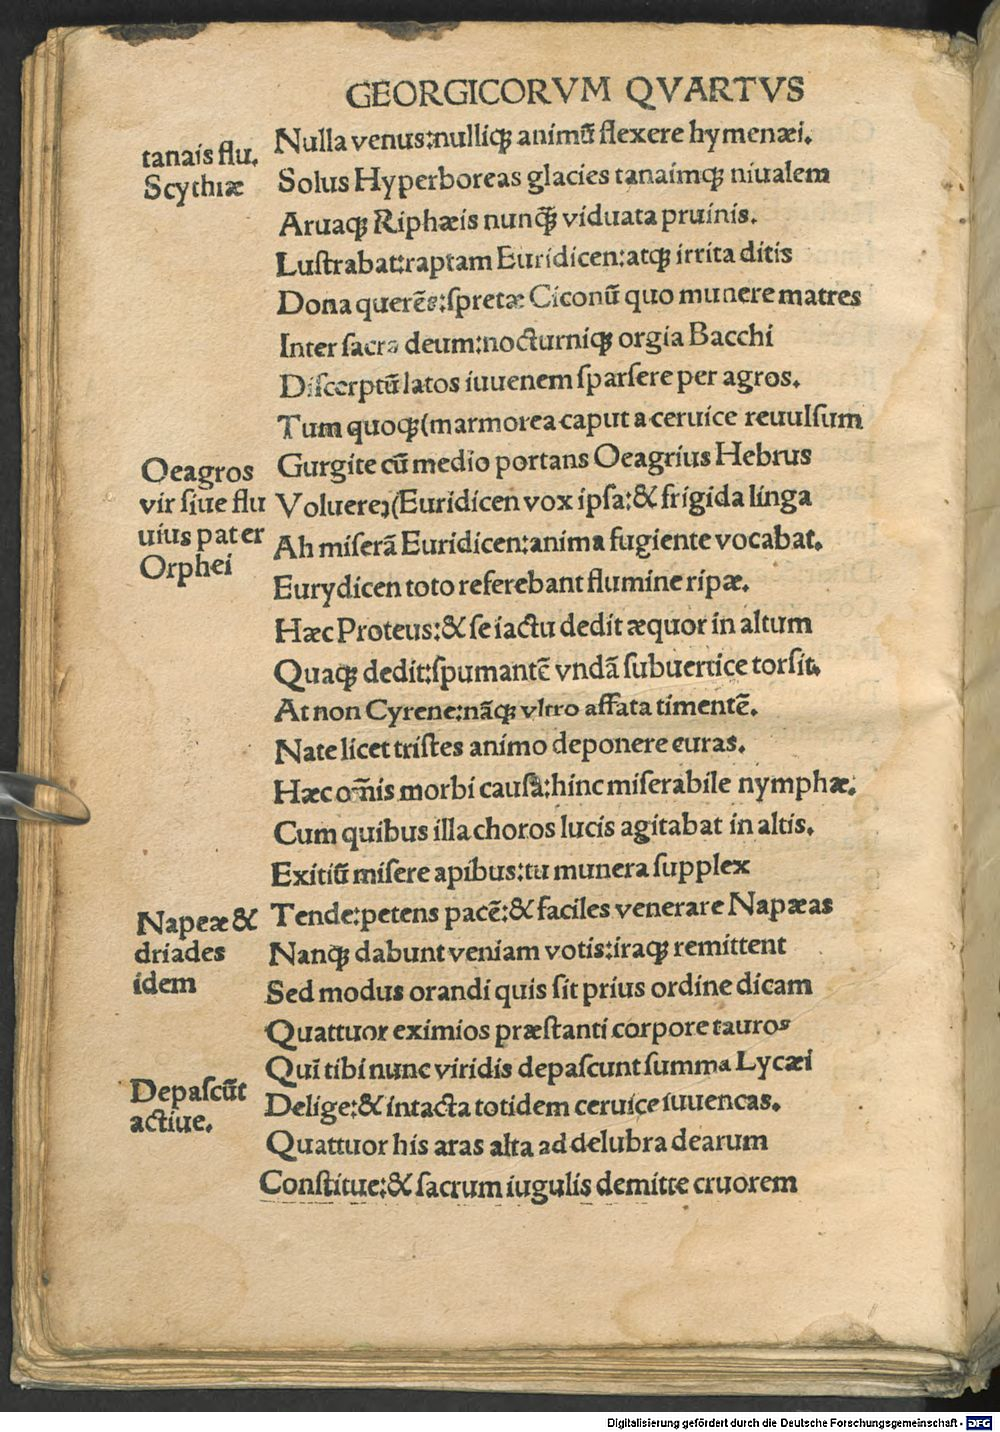 GEORGICORVM QVARTVS
Nulla venus:nulliqꝫ animū flexere hymenæi.
tanais flu.
Scythiæ
Solus Hyperboreas glacies tanaimqꝫ niualem
Aruaqꝫ Riphæis nunqꝫ̄ viduata pruinis.
Luſtrabat:raptam Euridicen:atqꝫ irrita ditis
Dona querēs:ſpretæ Ciconū quo munere matres
Inter ſacra deum:nocturniqꝫ orgia Bacchi
Diſcerptū latos iuuenem ſparſere per agros.
Tum quoqꝫ(marmorea caput a ceruice reuulſum
Gurgite cū medio portans Oeagrius Hebrus
Oeagros
vir ſiue flu
uius pater
Orphei
Voluereɿ(Euridicen vox ipſa:& frigida linga
Ah miſerā Euridicen:anima fugiente vocabat.
Eurydicen toto referebant flumine ripæ.
Hæc Proteus:& ſe iactu dedit æquor in altum
Quaqꝫ dedit:ſpumantē vndā ſubuertice torſit.
At non Cyrene:nāqꝫ vltro affata timentē.
Nate licet triſtes animo deponere curas.
Hæc om̄is morbi cauſa:hinc miſerabile nymphæ.
Cum quibus illa choros lucis agitabat in altis.
Exitiū miſere apibus:tu munera ſupplex
Tende:petens pacē:& faciles venerare Napæas
Napeæ &
driades
idem
Nanqꝫ dabunt veniam votis:iraqꝫ remittent
Sed modus orandi quis ſit prius ordine dicam
Quattuor eximios præſtanti corpore tauros
Qui tibi nunc viridis depaſcunt ſumma Lycæi
Depaſcūt
actiue.
Delige:& intacta totidem ceruice iuuencas.
Quattuor his aras alta ad delubra dearum
Conſtitue:& ſacrum iugulis demitte cruorem
Digitalisierung gefördert durch die Deutsche Forschungsgemeinschaft - DFG